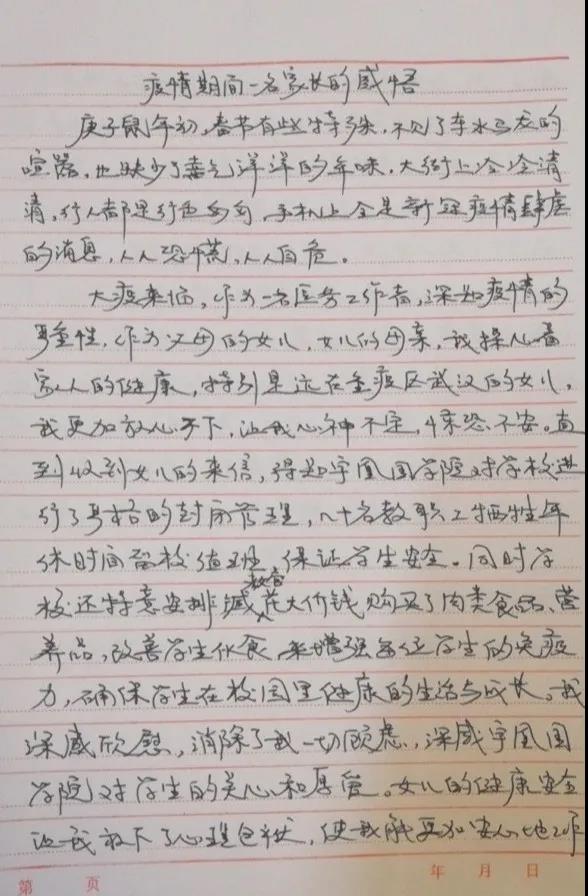 疫情期间一名家长的感悟
庚子鼠年初，春节有些特殊，不见了车水马龙的
喧嚣，也缺少了喜气洋洋的年味，大街上冷冷清
清，行人都是行色匆匆，手机上全是新冠疫情肆虐
的消息，人人恐慌，人人自危。
大疫来临，作为一名医务工作者，深知疫情的
严重性，作为父母的女儿，女儿的母亲，我操心着
家人的健康，特别是远在重疫区武汉的女儿，
我更加放心不下，让我心神不定，惶恐不安。直
到收到女儿的来信，得知宇凰国学院对学校进
行了严格的封闭管理，几十名教职工牺牲年
休时间留校值班，保证学生安全。同时学
校还特意安排臧教官花大价钱购买了肉类食品、营
养品，改善学生伙食，来增强每位学生的免疫
力，确保学生在校园里健康的生活与成长。我
深感欣慰，消除了我一切顾虑，深感宇凰国
学院对学生的关心和厚爱。女儿的健康安全
让我放下了心理包袱，使我能更加安心地工作
第 页 年 月 日